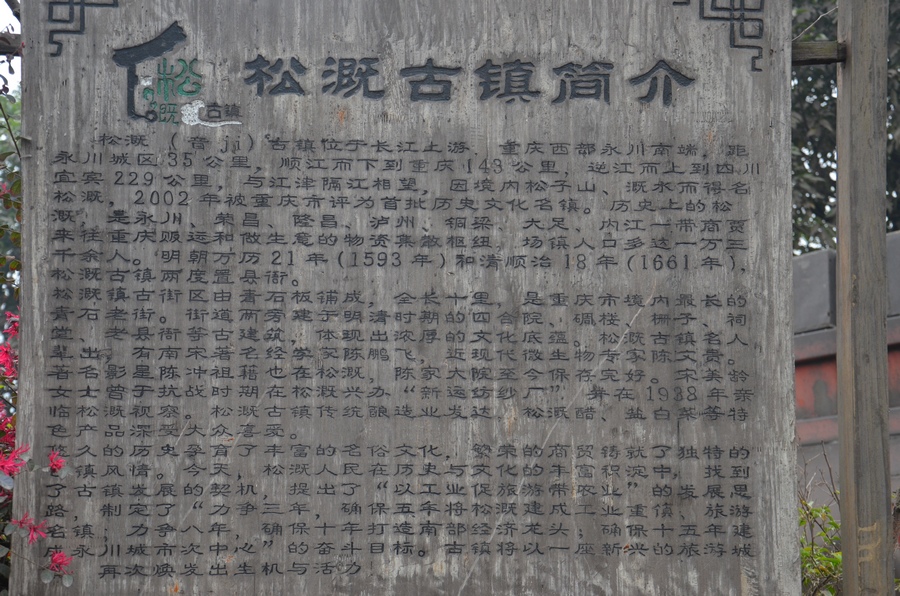 松溉
古镇
松溉古镇简介
松溉（音jì）古镇位于长江上游、重庆西部永川南端，距
永川城区35公里，顺江而下到重庆143公里，逆江而上到四川
宜宾229公里，与江津隔江相望，因境内松子山、溉水而得名
松溉，2002年被重庆市评为首批历史文化名镇。历史上的松
溉，是永川、荣昌、隆昌、泸州、铜梁、大足、内江一带商贾
来往重庆贩运和做生意的物资集散枢纽，场镇人口多达一万三
千余人。明朝万历21年(1593年)和清顺治18年(1661年)，
松溉古镇两度置县衙。
松溉镇古街区由青石板铺成，全长十里，是重庆市境内最长的
青石老街。街道两旁建于明清时期的四合院、碉楼、栅子、祠
堂、老县衙等古建筑，体现出浓厚的文化底蕴。松溉古镇名人
辈出，有南宋著名经学家陈鹏飞，近现代微生物专家陈文贵。
著名影星陈冲祖籍也在松溉，陈家大院至今保存完好。宋美龄
女士曾于抗战时期在松溉兴办“新运纺织厂”，并在1938年亲
临松溉视察。松溉古镇传统酿造业发达，松溉醋、盐白菜等特
色产品深受大众喜爱。
悠久历史孕育了丰富的民俗文化，繁荣的商贸铸就了独特的
古镇风情。今天，松溉人在历史与文化的丰富积淀中，找到
了古镇发展的契机，提出了“以工业促旅游带农业”的发展思
路，制定了力争三年，确保五年将松溉建成工业重镇、旅游
名镇，力争“八年确保十年打造南部经济龙头；确保十五年建
成永川城市次中心”的奋斗目标。古镇将以一座新兴的旅游城
再次焕发出生机与活力